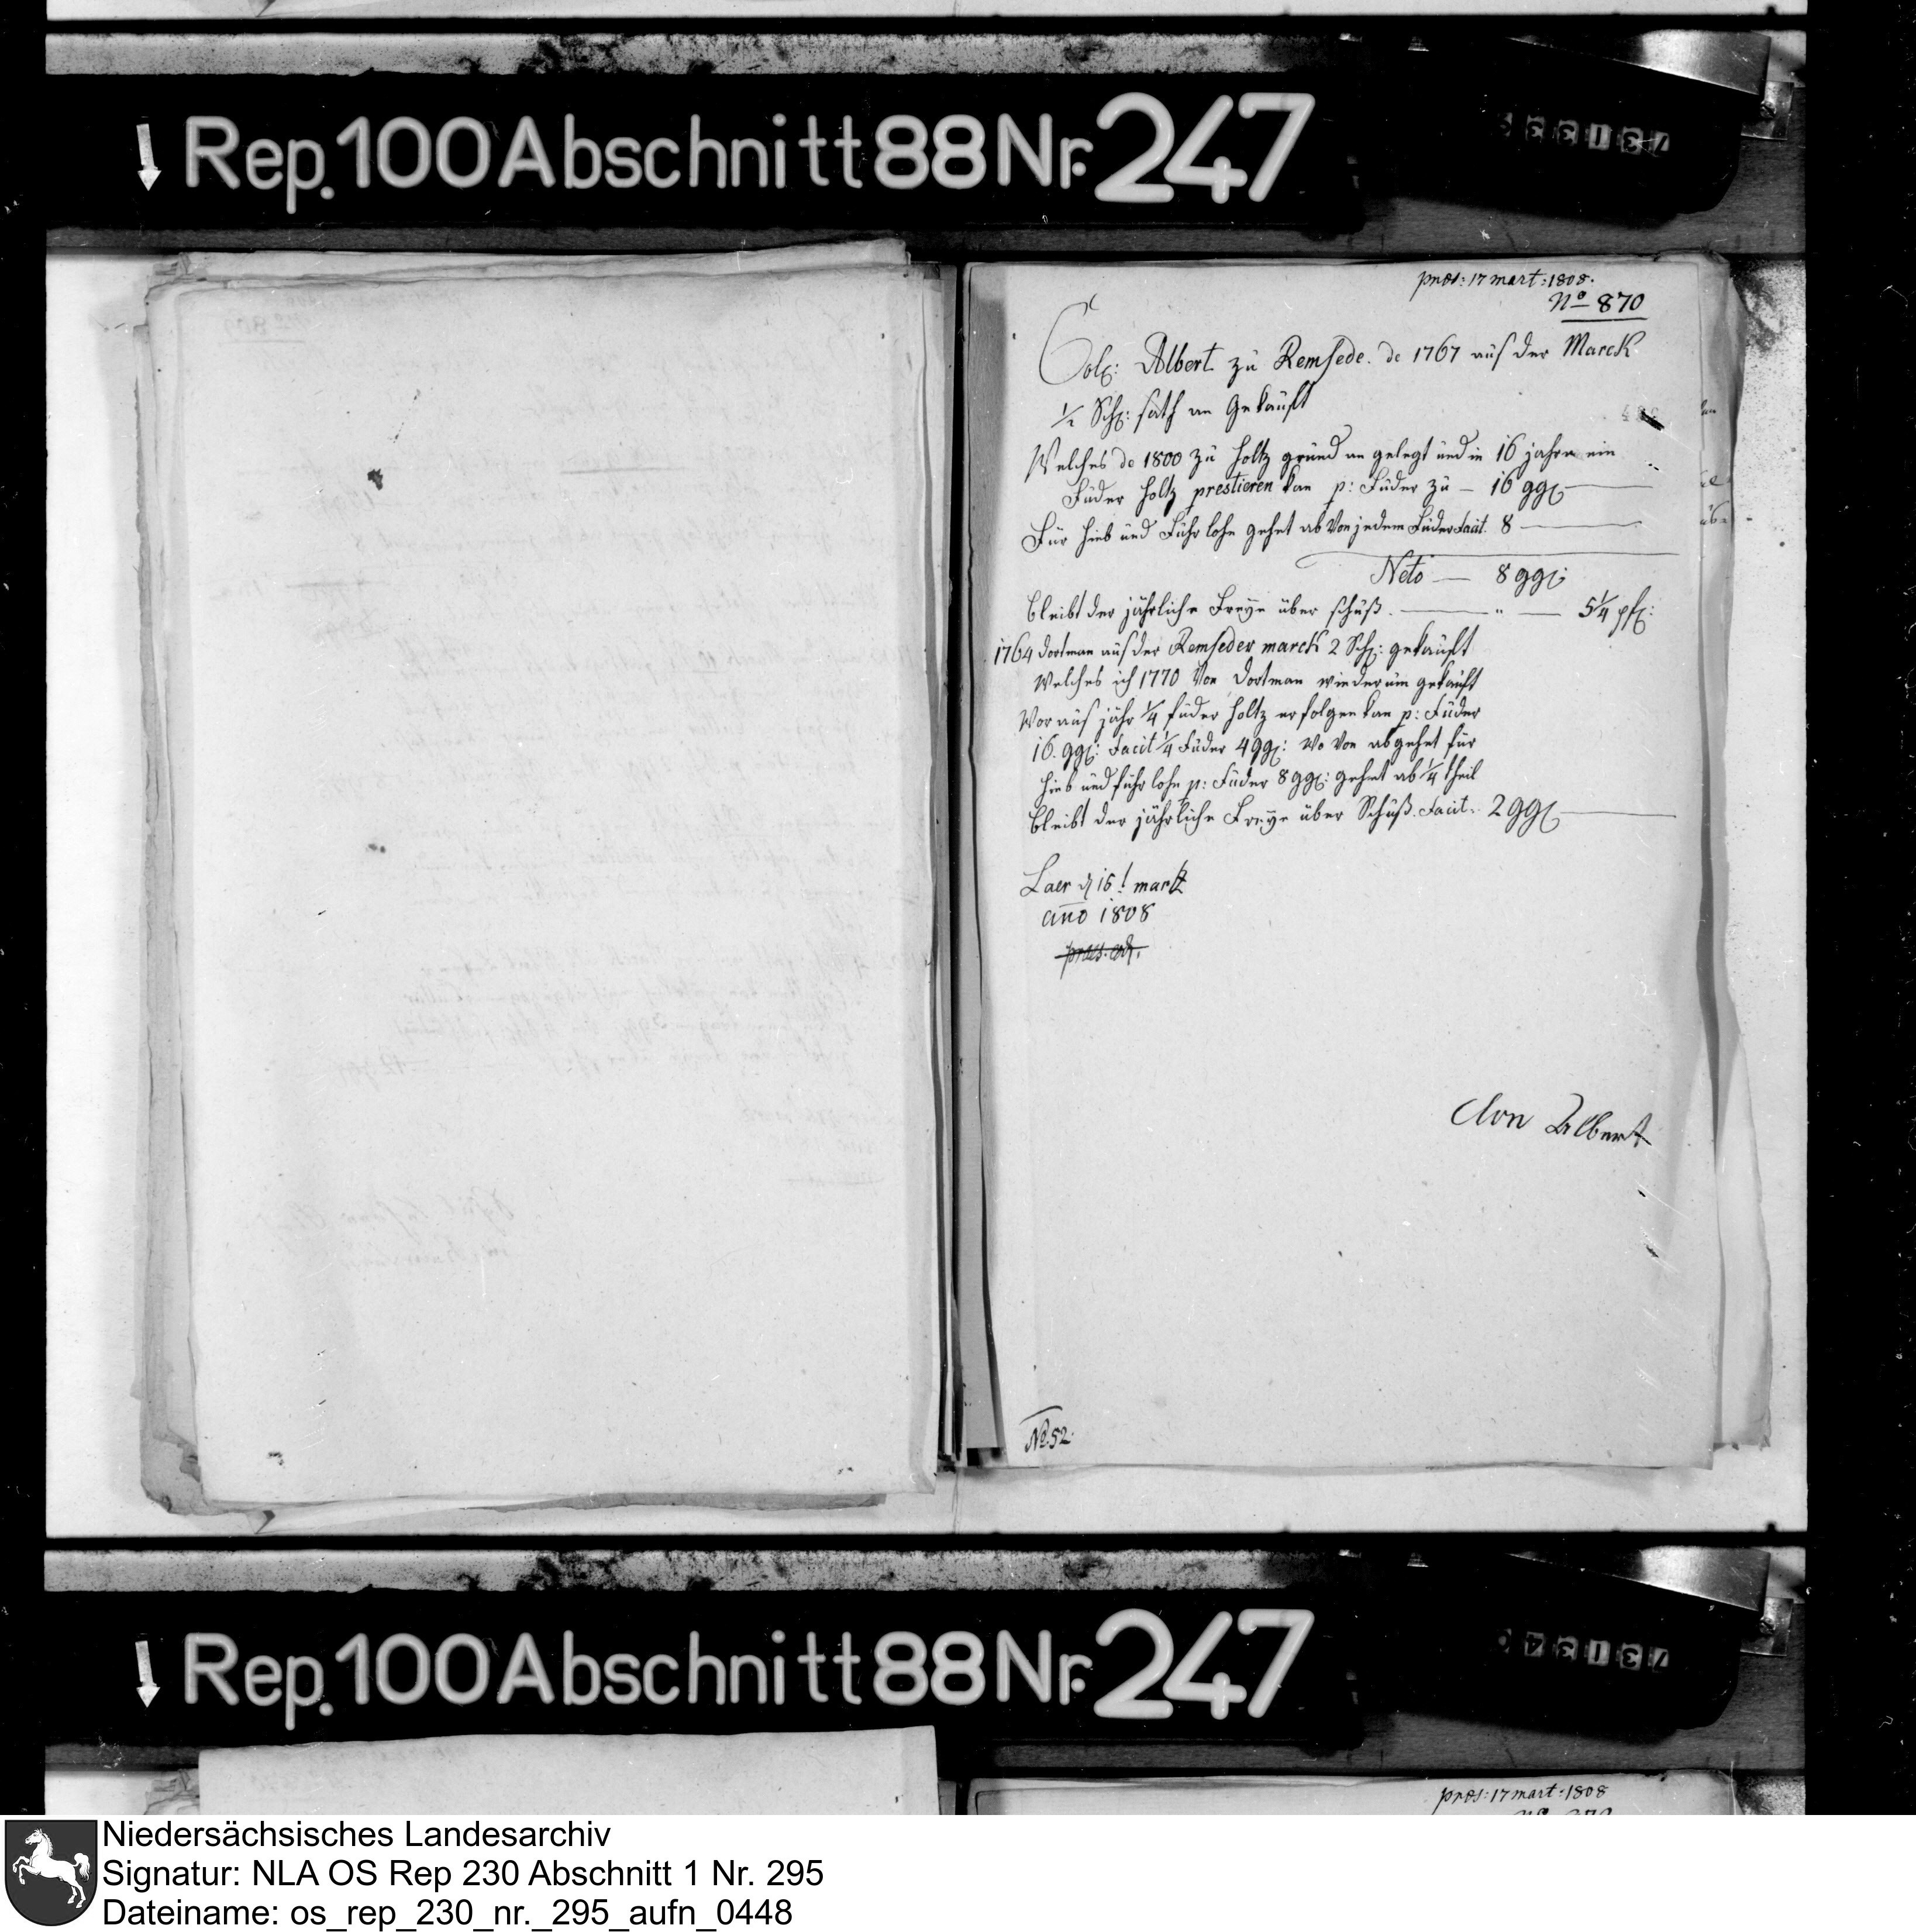 Rep. 100 Abschnitt 88 Nr. 247
præs: 17 mart: 1808.
No 870
Col: Albert zu Remsede. de 1767 aus der Marck
1/2 Sch: sath an Gekauft
Welches de 1800 zu Holtz grund an gelegt und in 16 jahren ein
Fuder Holtz prestieren kan p: Fuder zu — 16 gg:
Für Hieb und Fuhr lohn gehet ab Von jedem Fuder Facit. 8
Neto — 8 gg:
bleibt der jährliche Freye über schuß. — " — 5 1/4 pf:
1764 Dortman aus der Remseder marck 2 Sch: gekauft
Welches ich 1770 Von Dortman wiederum gekauft
Wor aus jähr 1/4 fuder Holtz erfolgen kan p: Fuder
16. gg: Facit 1/4 Fuder 4 gg: Wo Von abgehet für
Hieb und fuhr lohn p: Fuder 8 gg: gehet ab 1/4 theil
bleibt der jährliche Freye über Schuß. Facit. 2 gg:
Laer d 16t martz
año 1808
præs. eod.
Col Albert
No. 52.
Rep. 100 Abschnitt 88 Nr. 247
præs: 17 mart: 1808
Niedersächsisches Landesarchiv
Signatur: NLA OS Rep 230 Abschnitt 1 Nr. 295
Dateiname: os_rep_230_nr._295_aufn_0448